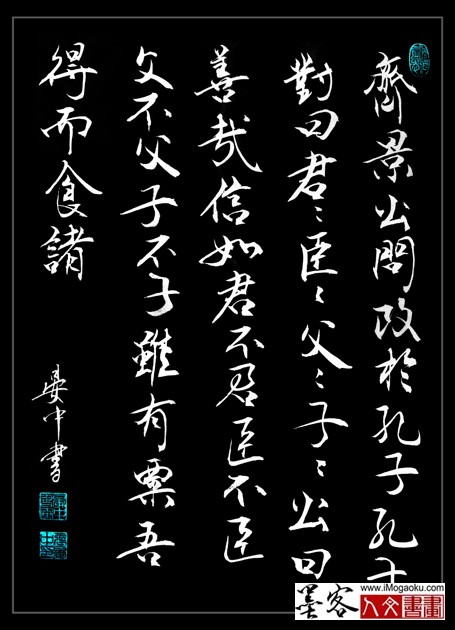 齊景公問政於孔子孔子
對曰君〻臣〻父〻子〻公曰
善哉信如君不君臣不臣
父不父子不子雖有粟吾
得而食諸
晏中書
www.iMogaoku.com
墨客
人文書畫